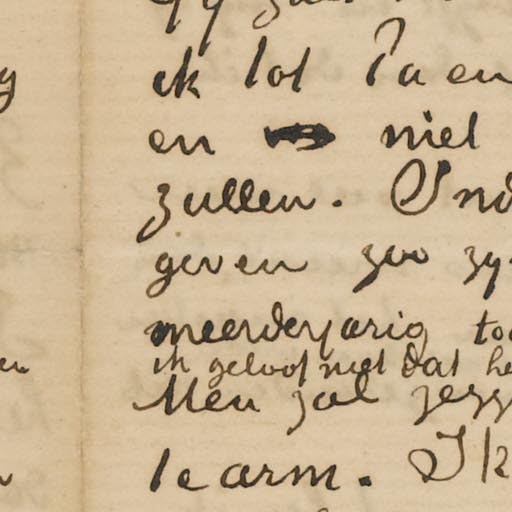 ik tot Pa en
en niet
zullen. Ind
geven zoo zy
meerderjarig to
ik geloof niet dat he
Men zal zegg
te arm. Ik